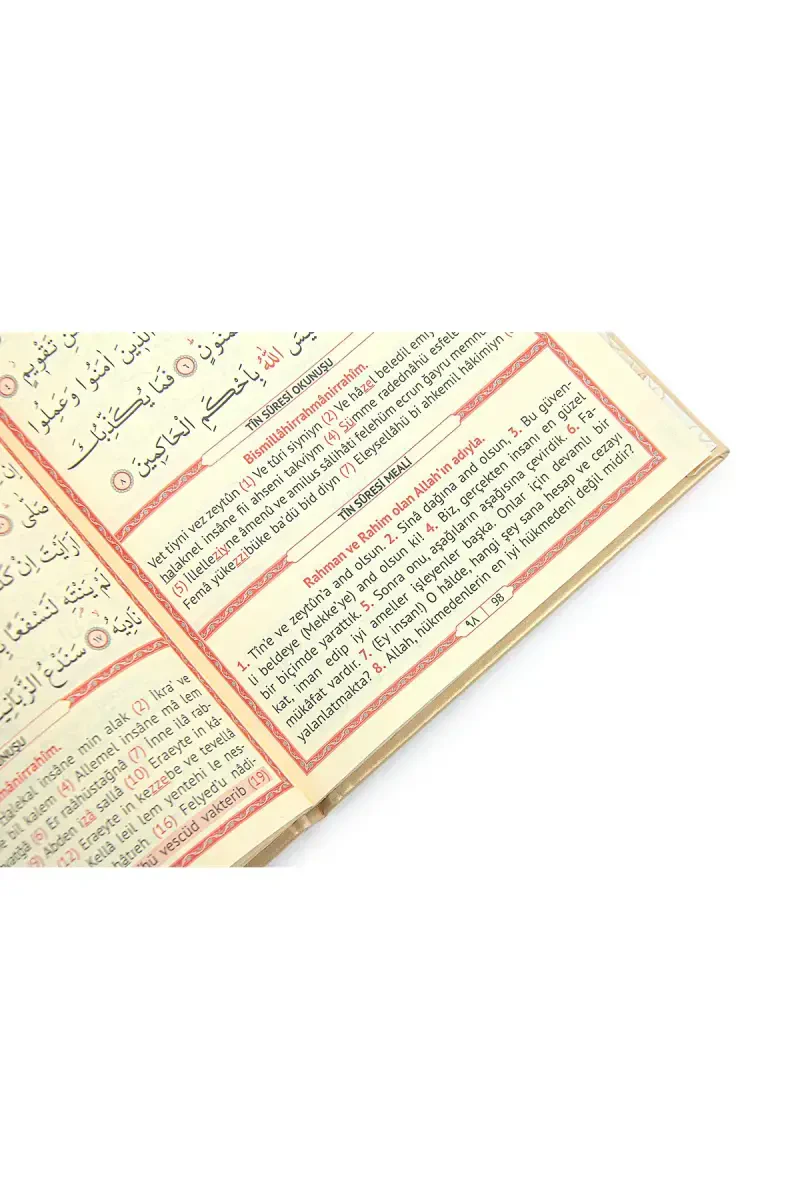 مِّن تَقْوِيمٍ ٤
الَّذِينَ اٰمَنُوا وَعَمِلُوا
مَمْنُونٍ ٦ فَمَا يُكَذِّبُكَ
اللّٰهُ بِاَحْكَمِ الْحَاكِمِينَ ٨
TÎN SÛRESİ OKUNUŞU
Bismillâhirrahmânirrahîm.
Vet tiyni vez zeytûn (1) Ve tûri siyniyn (2) Ve hâzel beledil
halaknel insâne fi ahseni takviym (4) Sümme radednâhü esfele
(5) İllelleziyne âmenû ve amilus sâlihâti felehüm ecrun ğayru
Femâ yükezzibüke ba'dü bid diyn (7) Eleysellâhü bi ahkemil hâkimiyn
TÎN SÛRESİ MEÂLİ
Rahman ve Rahim olan Allah'ın adıyla.
1. Tîn'e ve zeytûn'a and olsun. 2. Sinâ dağına and olsun, 3. Bu güven-
li beldeye (Mekke'ye) and olsun ki! 4. Biz, gerçekten insanı en güzel
bir biçimde yarattık. 5. Sonra onu, aşağıların aşağısına çevirdik. 6. Fa-
kat, iman edip iyi ameller işleyenler başka. Onlar için devamlı bir
mükâfat vardır. 7. (Ey insan!) O hâlde, hangi şey sana hesap ve cezayı
yalanlatmakta? 8. Allah, hükmedenlerin en iyi hükmedeni değil midir?
٩٨ 98
اَرَاَيْتَ اِنْ
لَمْ يَنْتَهِ لَنَسْفَعًا
نَادِيَهُ ١٧ سَنَدْعُ الزَّبَانِيَةَ
insâne min alak (2) İkra' ve
bil kalem (4) Allemel insâne mâ lem
(6) Er raâhüstağnâ (7) İnne ilâ rab-
(9) Abden izâ sallâ (10) Eraeyte in kâ-
(12) Eraeyte in kezzebe ve tevellâ
Kellâ leil lem yentehi le nes-
hâtieh (16) Felyed'u nâdi-
vescüd vakterib (19)